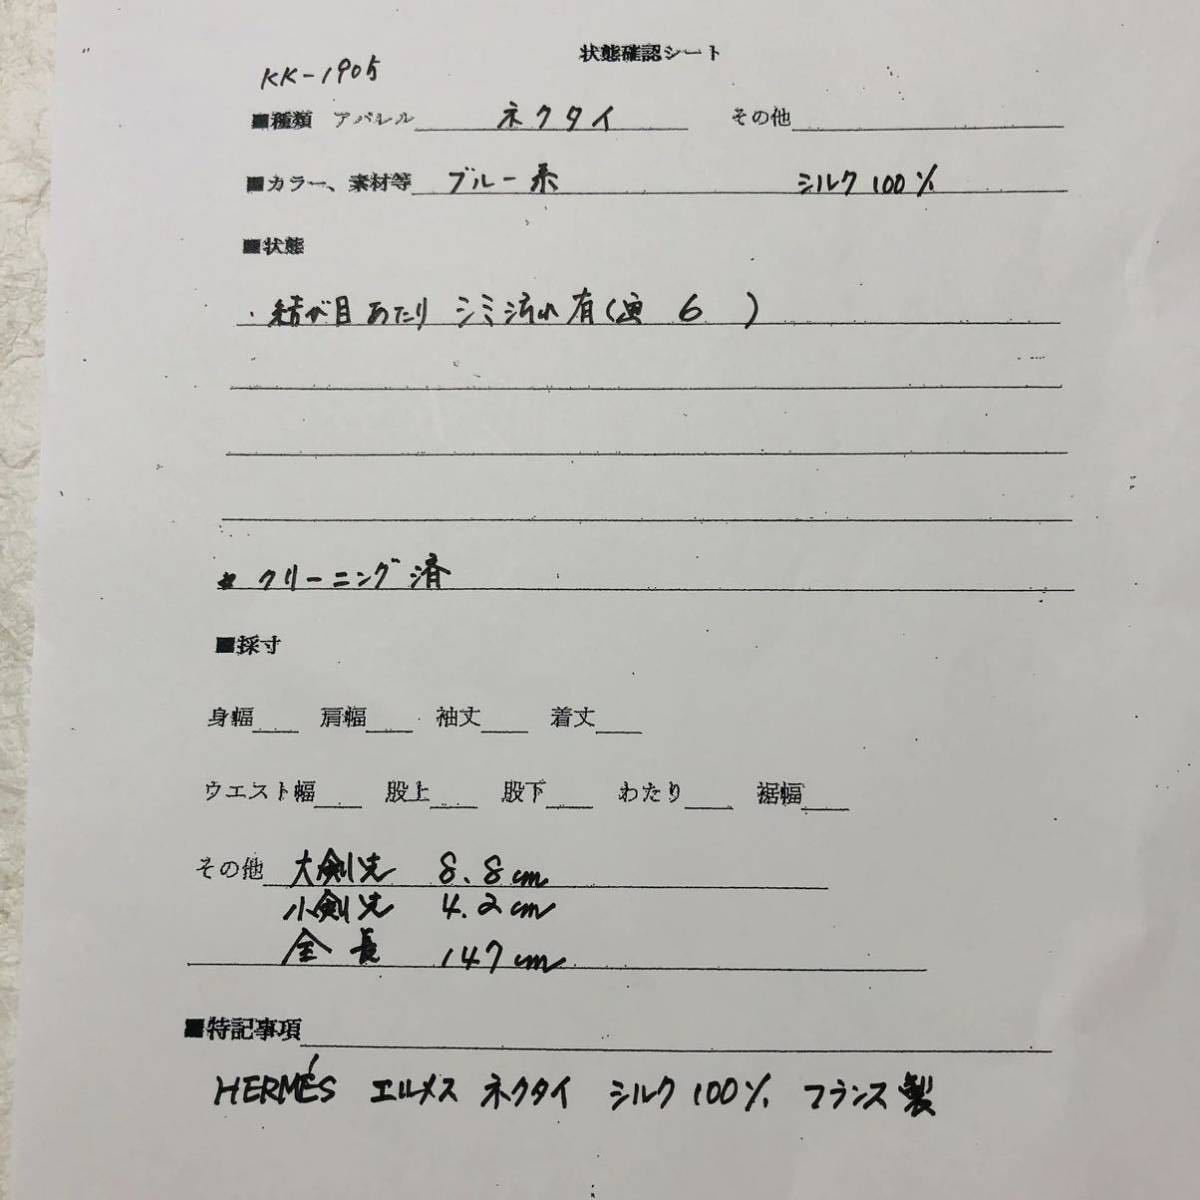 状態確認シート
KK-1905
■種類 アパレル ネクタイ その他
■カラー、素材等 ブルー系 シルク100%
■状態
・結び目あたり シミ流れ有(画 6 )
* クリーニング済
■採寸
身幅 肩幅 袖丈 着丈
ウエスト幅 股上 股下 わたり 裾幅
その他 大剣先 8.8cm
小剣先 4.2cm
全長 147cm
■特記事項
HERMÉS エルメス ネクタイ シルク100% フランス製